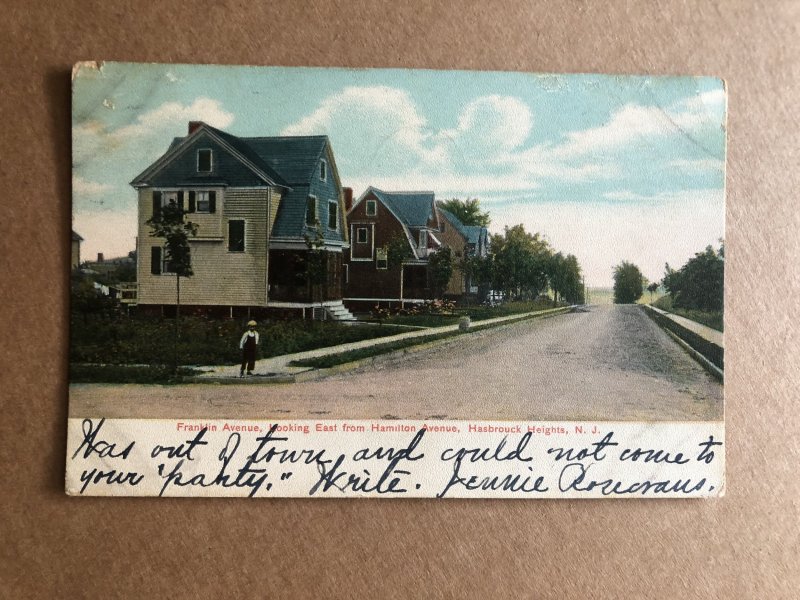 Franklin Avenue, Looking East from Hamilton Avenue, Hasbrouck Heights, N. J.
Was out of town, and could not come to
your "party." Write. Jennie Rosecrans.